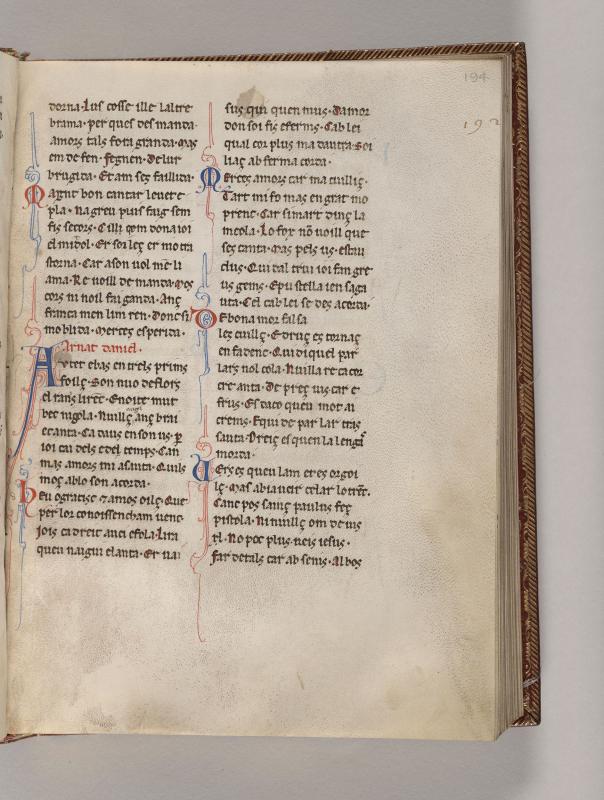 194
192
dorna· Lus cosse ille laltre
brama· per ques des manda·
amors tals fora granda· mas
em de fen· segnen· de lur
brugida· Et am ses faillida·
Maynt bon cantar leuet e
pla· Nagreu puis faig sem
fis secors· Cilli qem dona ioi
el midol· Er soi leç er mo tra
storna· Car a son uol me li
ama· Re noill demanda mos
cors ni noil fai ganda· Anç
franca men lim ren· donc si
mo blida· merces es perida·
Arnat daniel·
Autet e bas entrels prims
foilç· Son nuo de flors
el rans lirenc· Enoi te mut
bec nigola· Nuillç anç brai
e canta· Ca daus en son us p
ioi cai dels e del temps· Can
mas amors mi asauta· Quils
moç ablo son acorda·
Deu o graisc τ amos oilç· Que
per lor conoissencham uenc
iois ca dreit auci e fola· Lira
queu naigui e lanta· Er uai
sus qui quen mus· Damor
don soi fis e ferms· Cab lei
qual cor plus ma dautra soi
liaç ab ferma corda·
Merces amors car ma cuillç·
Tart mi fo mas en grat mo
prenc· Car si mart dinç la
meola· Lo fox nō uoill que
ses canta· mas pels us· estau
clus· Qui dal trui ioi fan gre
us gems· Epu stella ien saga
uta· Cel cab lei se des acorda·
De bona mor falsa
les cuillç· E druç es tornaç
en fadenc· Qui di quel par
lars nol cola· Nuilla re ca cor
cre anta· De preç uis car e
frus· Es daco queu mor ai
crems· E qui de par lar tris
sauta· Dreiç es quen la lenga
morda·
Uers es queu lam et es orgoi
lç· mas ab iauçir celar lo tenc·
Canc pos sainç paulus feç
pistola· Ni nuillç om de ius
ti· No poc plus neis iesus·
far de tals car ab sems· Al bos